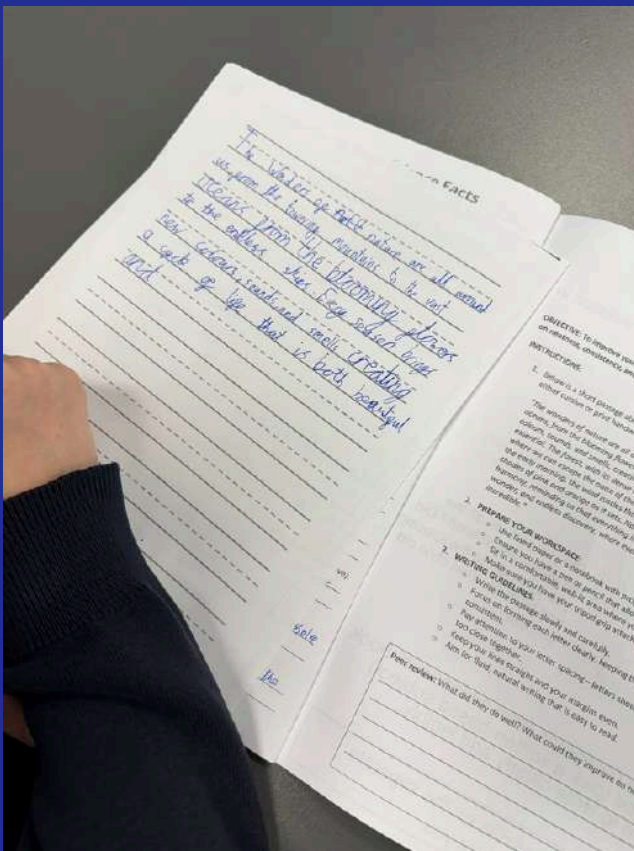 Facts
The Wonders of nature are all around
us, from the towering mountains to the vast
oceans from the blooming flowers
to the endless skies. Every season brings
new colours, sounds, and smells, creating
a cycle of life that is both beautiful
and
sole
the
OBJECTIVE: To improve your
on neatness, consistency, and
INSTRUCTIONS:
1. Below is a short passage about
either cursive or print handw
"The wonders of nature are all a
oceans, from the blooming flow
colours, sounds, and smells, creat
essential. The forest, with its dense
where we can escape the noise of the
the early morning, the wind rustles th
shades of pink and orange as it sets. Na
harmony, reminding us that everything is
wonder, and endless discovery, where eve
incredible."
2. PREPARE YOUR WORKSPACE:
Use lined paper or a notebook with pro
Ensure you have a pen or pencil that all
Sit in a comfortable, well-lit area where y
Make sure you have your tripod grip attach
3. WRITING GUIDELINES:
Write the passage slowly and carefully.
Focus on forming each letter clearly, keeping th
consistent.
Pay attention to your letter spacing – letters shou
too close together.
Keep your lines straight and your margins even.
Aim for fluid, natural writing that is easy to read.
Peer review: What did they do well? What could they improve on ne